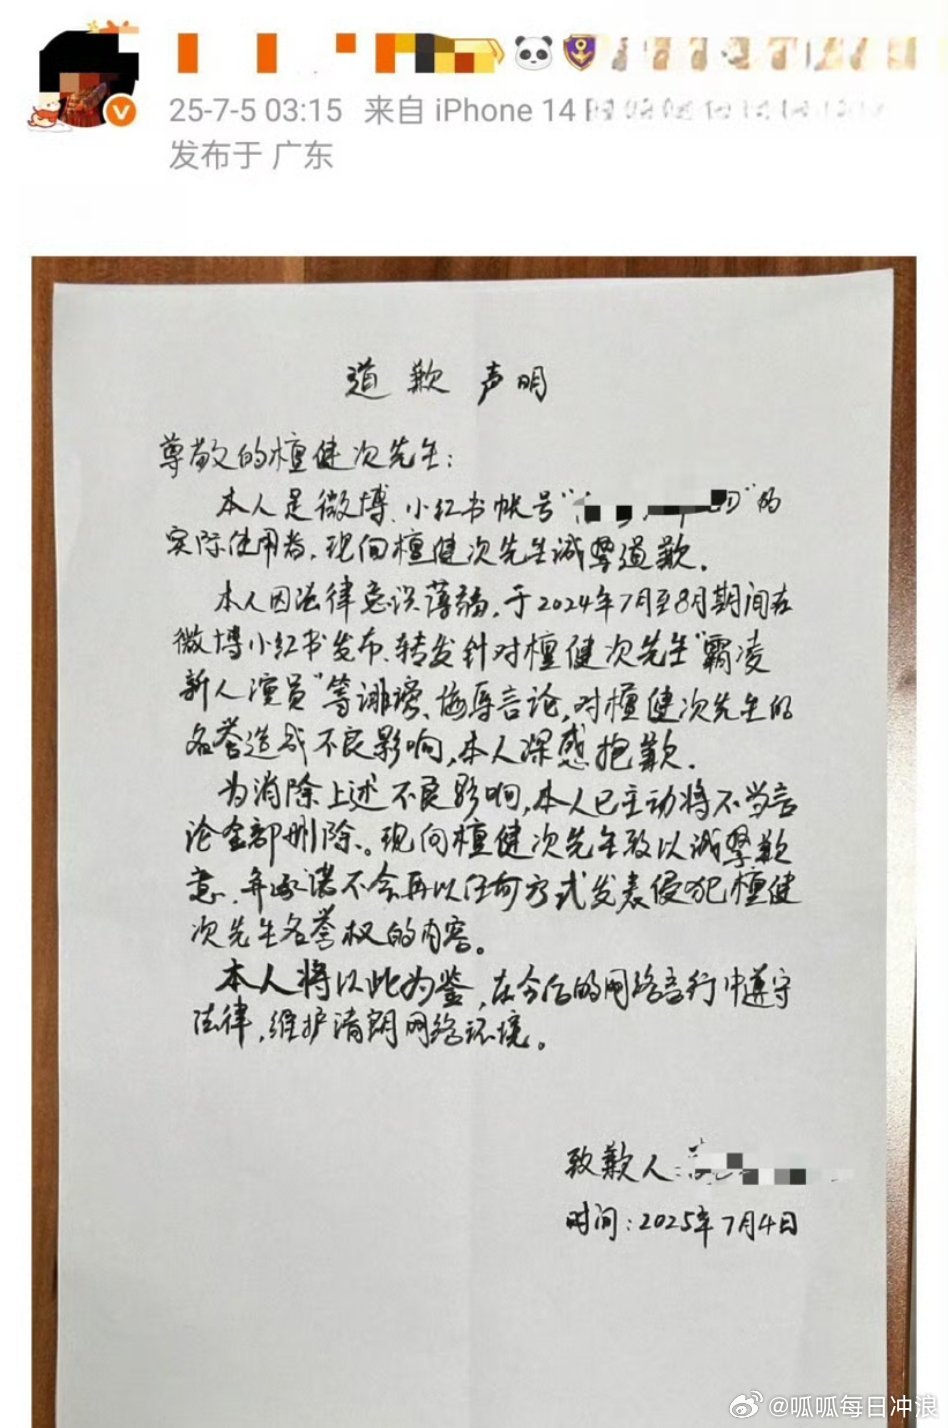 25-7-5 03:15 来自 iPhone 14
发布于 广东
道歉声明
尊敬的檀健次先生:
本人是微博、小红书帐号“的”的
实际使用者,现向檀健次先生诚挚道歉.
本人因法律意识薄弱,于2024年7月至8月期间在
微博小红书发布、转发针对檀健次先生“霸凌
新人演员”等诽谤、侮辱言论,对檀健次先生的
名誉造成不良影响,本人深感抱歉.
为消除上述不良影响,本人已主动将不当言
论全部删除。现向檀健次先生致以诚挚歉
意,并承诺不会再以任何方式发表侵犯檀健
次先生名誉权的内容。
本人将以此为鉴,在今后的网络言行中遵守
法律,维护清朗网络环境。
致歉人:
时间:2025年7月4日
@呱呱每日冲浪